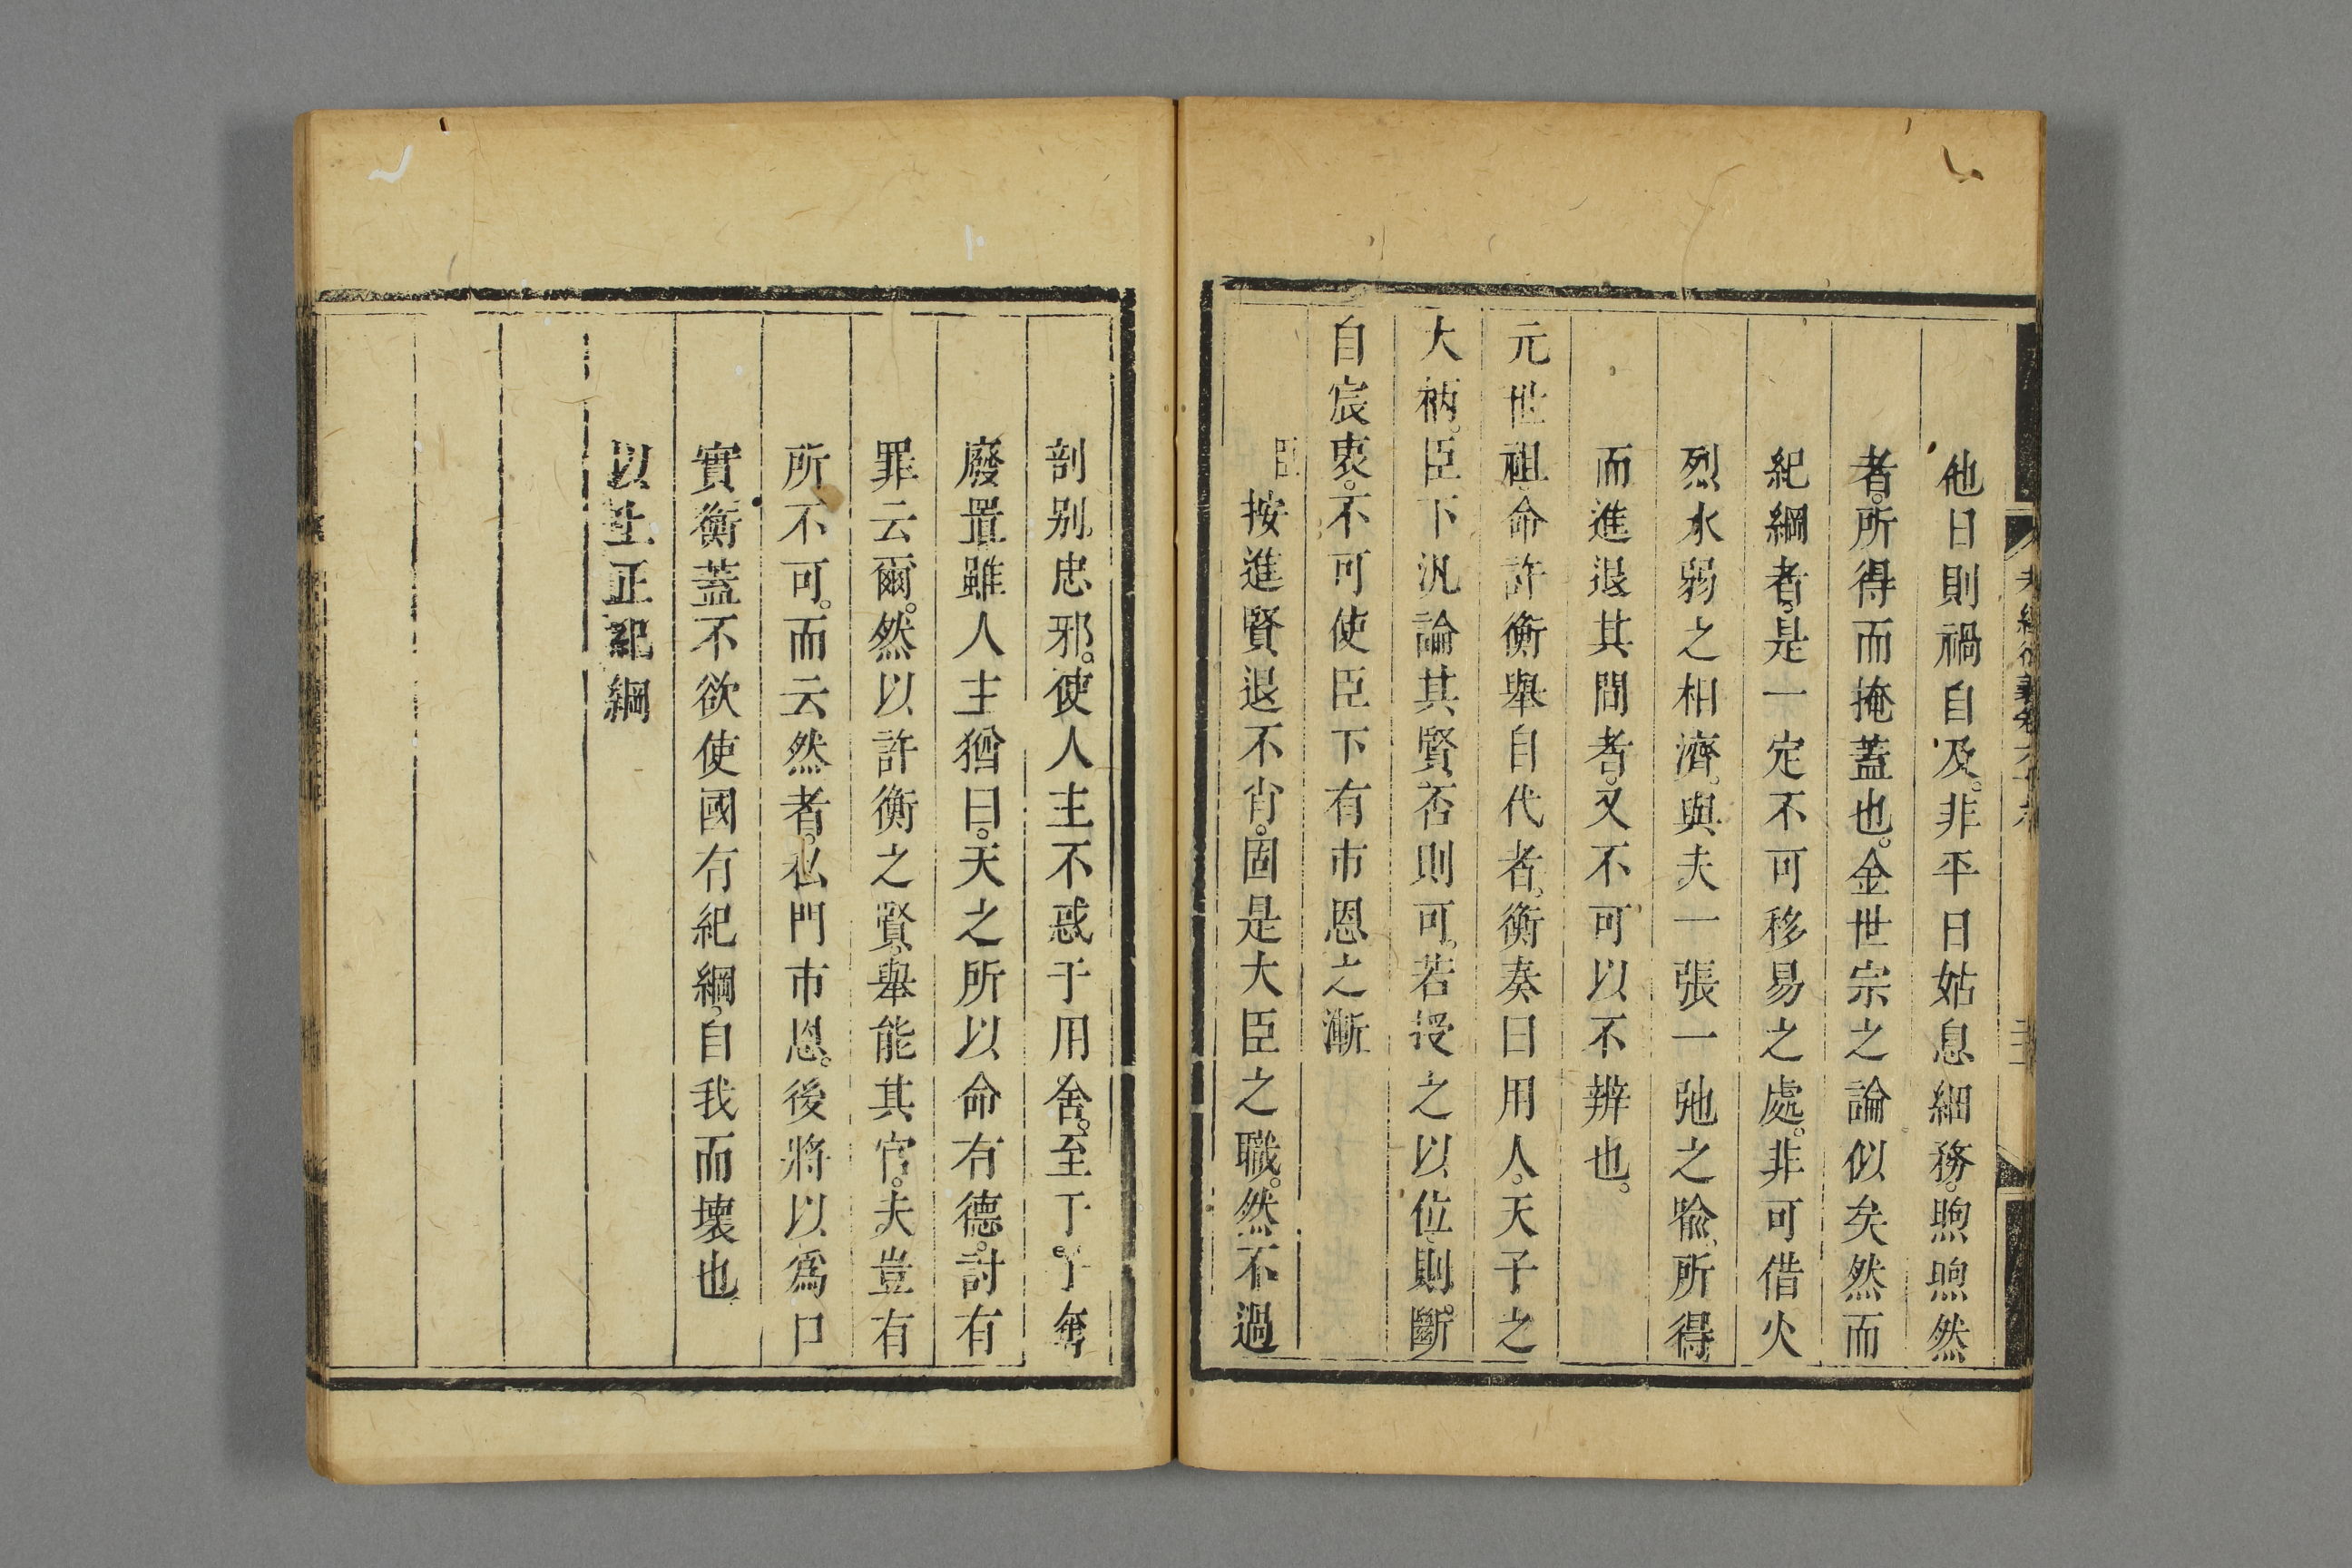 他日則禍自及。非平日姑息細務。煦煦然
者。所得而掩蓋也。金世宗之論似矣然而
紀綱者。是一定不可移易之處。非可借火
烈水弱之相濟。與夫一張一弛之喻。所得
而進退其間者。又不可以不辨也。
元世祖命許衡舉自代者。衡奏曰用人。天子之
大柄。臣下汎論其賢否則可。若授之以位則。斷
自宸衷。不可使臣下有市恩之漸
臣按進賢退不肖。固是大臣之職。然不過
剖别忠邪。使人主不惑于用舍。至于予奪
廢置雖人主猶曰。天之所以命有德。討有
罪云爾。然以許衡之賢舉能其官。夫豈有
所不可。而云然者。私門市恩。後將以爲口
實衡蓋不欲使國有紀綱自我而壞也
以上正紀綱